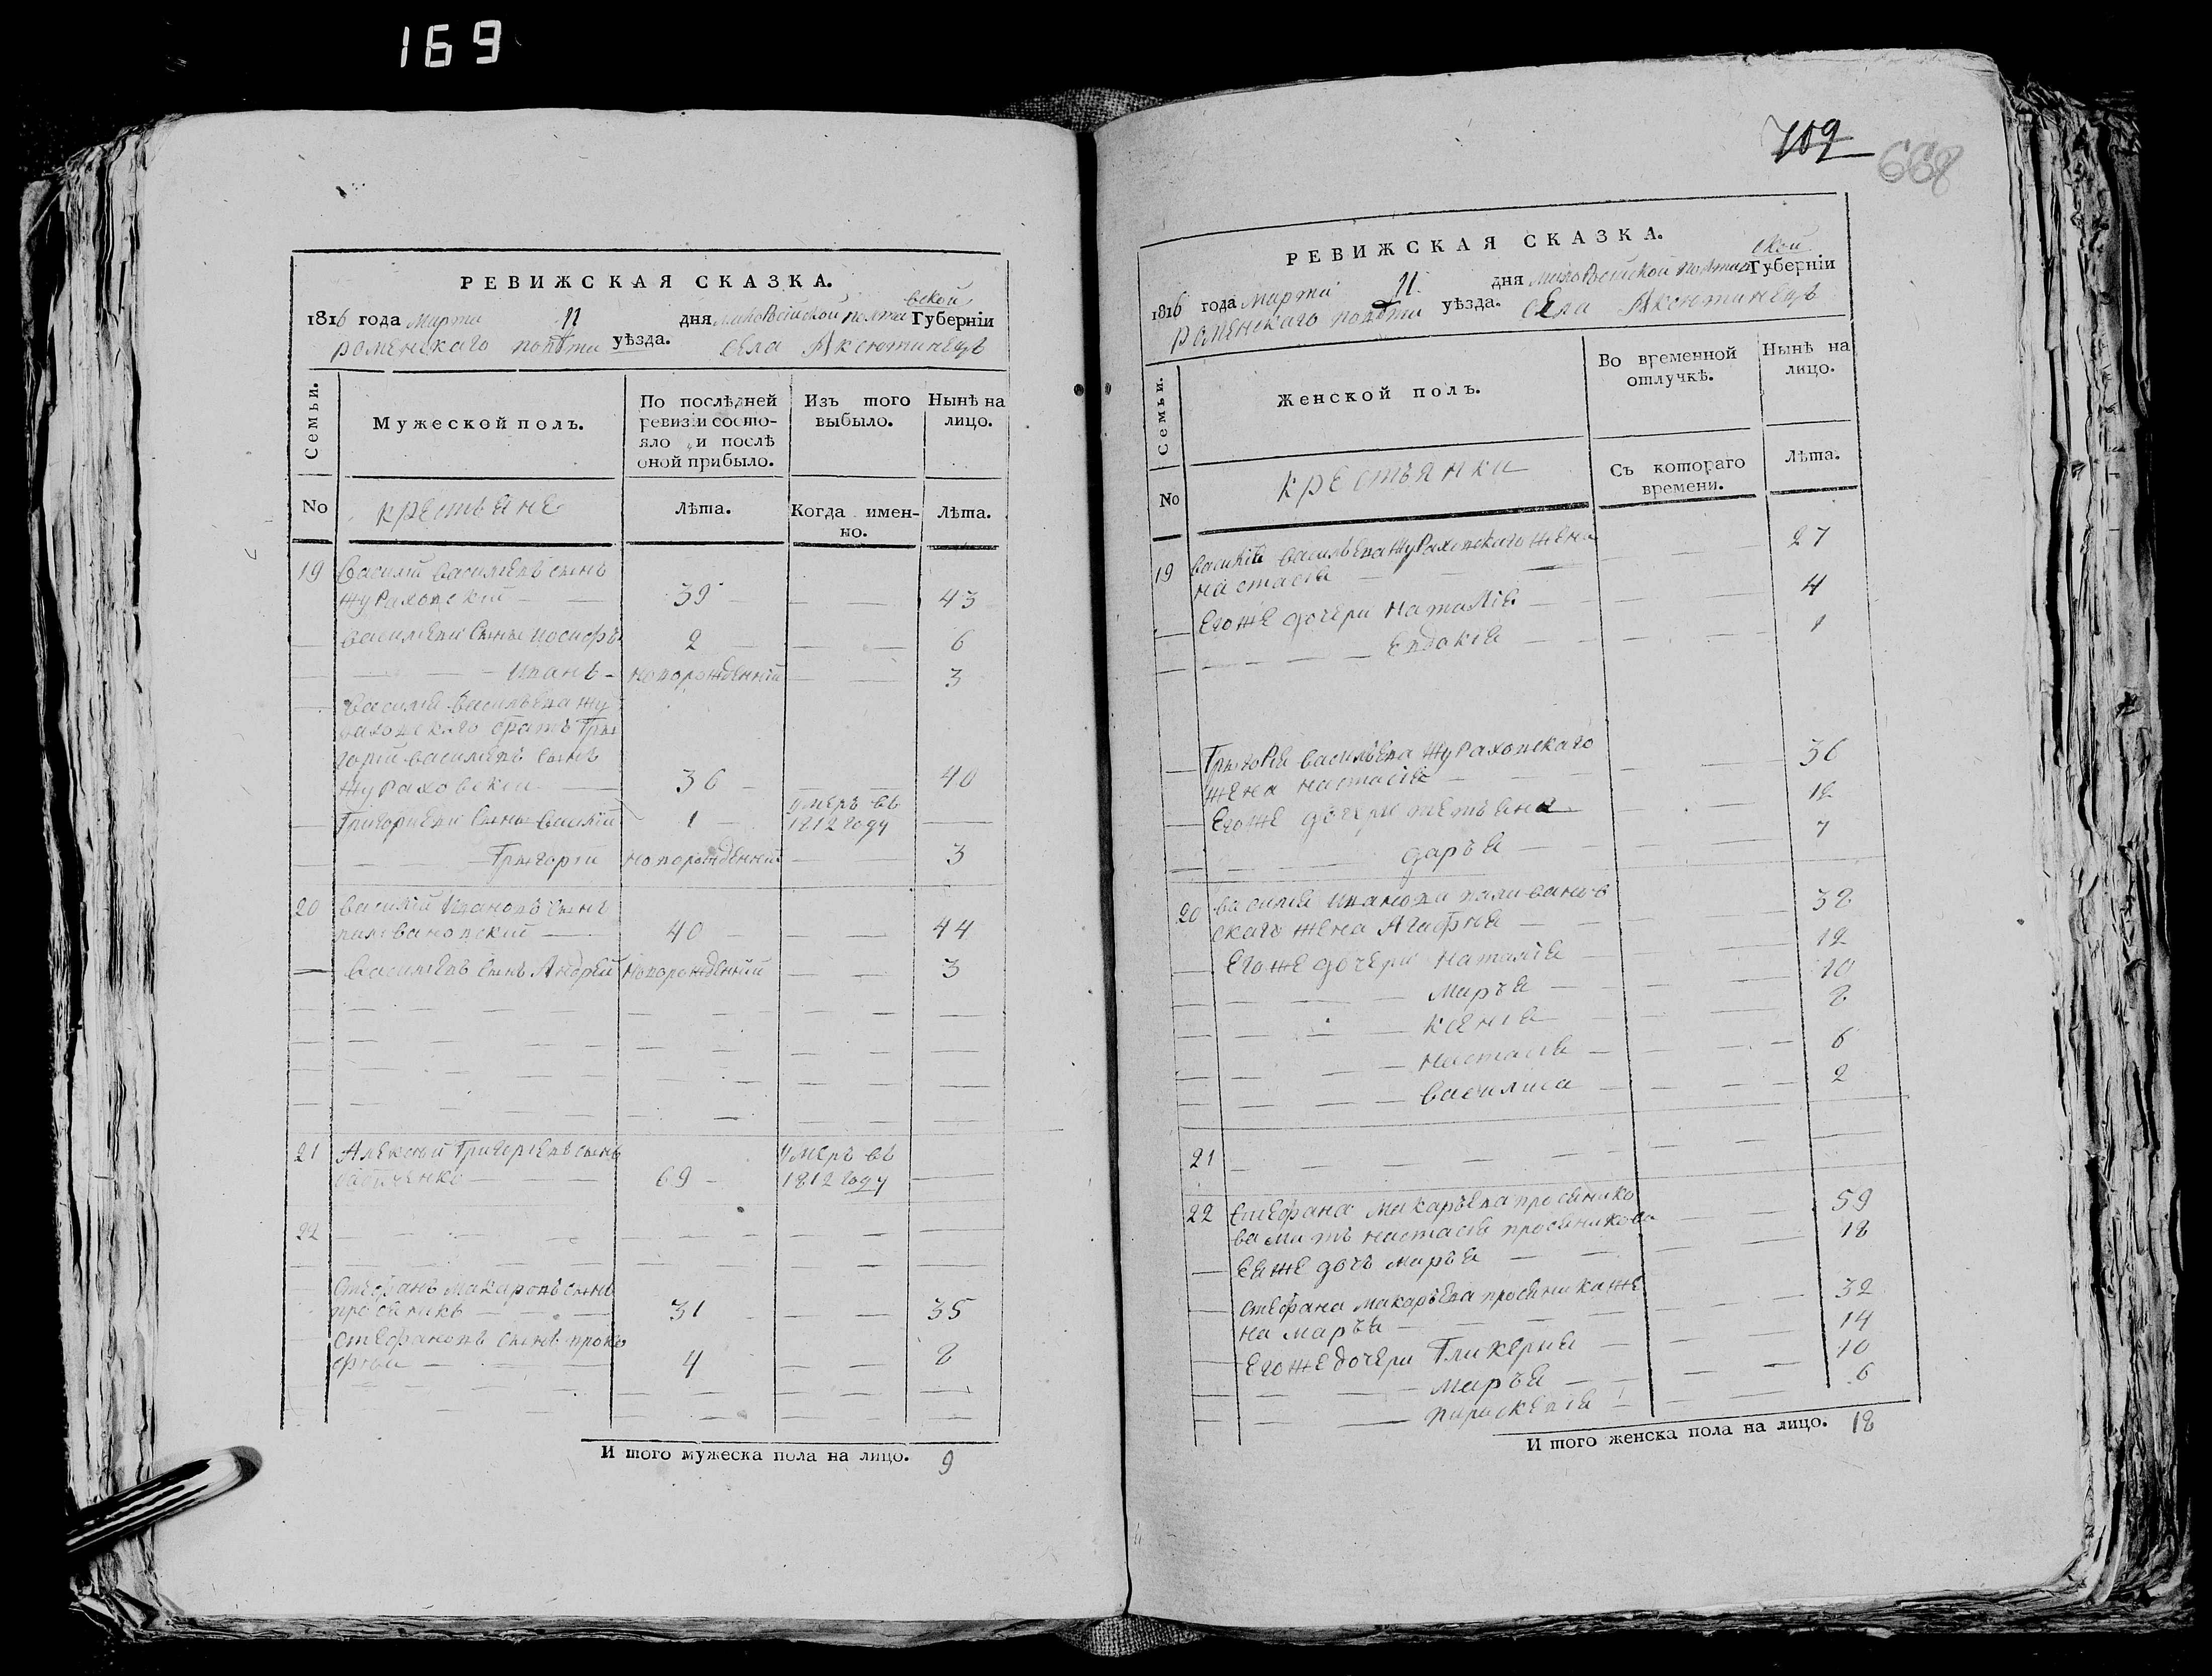 169
РЕВИЖСКАЯ СКАЗКА.
1816 года марта 11 дня малоросійской полтавской Губерніи
роменскаго повѣта уѣзда. села Аксютинецъ
Семьи.
Мужеской полъ.
По послѣдней ревизіи состояло и послѣ оной прибыло.
Изъ того выбыло.
Нынѣ на лицо.
No
крестьяне
Лѣта.
Когда именно.
Лѣта.
19 Василій васильевъ сынъ
жураховский 39 43
васильеви сыны иосифъ 2 6
иванъ новорожденній 3
василія васильева жу
раховскаго братъ Гри
горій васильевъ сынъ
жураховскій 36 40
Григориеви сыны василій 1 умеръ въ 1812 году
Григорій новорожденній 3
20 василій Ивановъ сынъ
паливановский 40 44
васильевъ сынъ Андрей новорожденній 3
21 Алексѣй Григориевъ сынъ
69 умеръ въ 1812 году
22
Стефанъ макаровъ сынъ
просяникъ 31 35
стефановъ сынъ проко
фей 4 8
И того мужеска пола на лицо. 9
709
668
РЕВИЖСКАЯ СКАЗКА.
1816 года марта 11 дня малоросійской полтавской Губерніи
роменскаго повѣта уѣзда. села Аксютинецъ
Семьи.
Женской полъ.
Во временной отлучкѣ.
Нынѣ на лицо.
No
крестьянки
Съ котораго времени.
Лѣта.
19 василія васильева жураховскаго жена
настасія 27
Егоже дочери наталія 4
Евдокія 1
Григорія васильева жураховскаго
жена настасія 36
Егоже дочери тетьяна 12
дарья 7
20 василія иванова паливанов
скаго жена Агафия 38
Егоже дочери наталія 12
марья 10
ксения 8
настасія 6
василиса 2
21
22 стефана макарьева просянико
ва мать настасія просяникова 59
Еяже дочъ марья 18
стефана макарьева просяника же
на марья 32
Егоже дочери Гликерия 14
марья 10
параскевія 6
И того женска пола на лицо. 18